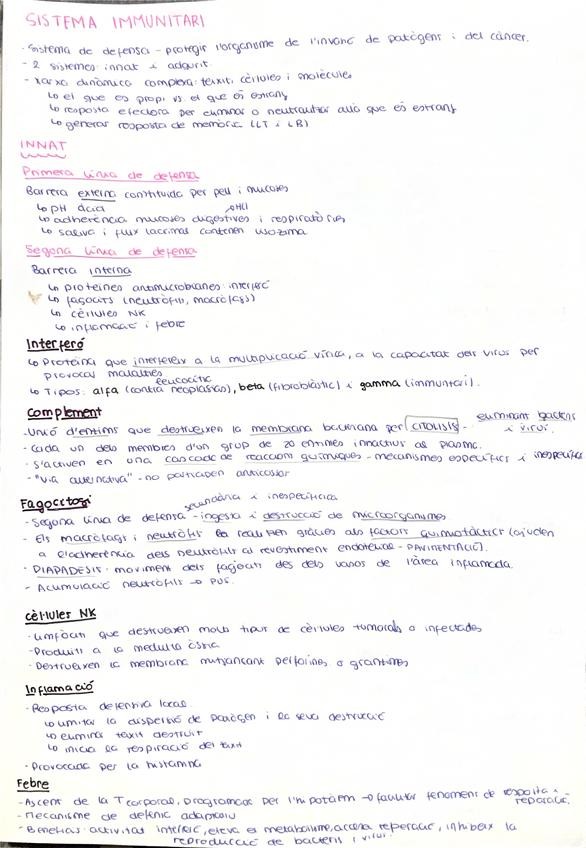 SISTEMA IMMUNITARI
- Sistema de defensa - protegir l'organisme de l'invasió de patògens i del càncer.
- 2 sistemes: innat i adquirit.
- xarxa dinàmica complexa: teixits, cèl·lules i molècules
↳ el que és propi vs el que és estrany
↳ resposta efectora per eliminar o neutralitzar allò que és estrany
↳ generar resposta de memòria (LT i LB)
INNAT
Primera línia de defensa
Barrera externa constituïda per pell i mucoses
↳ pH àcid
HCl
↳ adherència mucoses digestives i respiratòries
↳ saliva i flux lacrimal contenen lisozima
Segona línia de defensa
Barrera interna
↳ proteïnes antimicrobianes: interferó
↳ fagòcits (neutròfils, macròfags)
↳ cèl·lules NK
↳ inflamació i febre
Interferó
↳ Proteïna que interfereix a la multiplicació vírica, a la capacitat dels virus per
provocar malalties
leucocític
↳ Tipus: alfa (contra neoplàsies), beta (fibroblàstic) i gamma (immunitari).
Complement
- Unió d'enzims que destrueixen la membrana bacteriana per CITOLISIS - eliminant bacteris
i virus.
- Cada un dels membres d'un grup de 20 enzimes inactius al plasma.
- S'activen en una cascada de reaccions químiques - mecanismes específics i inespecífics
- "Via alternativa" - no participen anticossos
Fagocitosi
secundària i inespecífica
- Segona línia de defensa - ingesta i destrucció de microorganismes
- Els macròfags i neutròfils la realitzen gràcies als factors quimiotàctics (ajuden
a l'adherència dels neutròfils al revestiment endotelial - PAVIMENTACIÓ).
- DIAPADESIS: moviment dels fagòcits des dels vasos de l'àrea inflamada.
- Acumulació neutròfils → PUS.
cèl·lules NK
- Limfòcits que destrueixen molts tipus de cèl·lules tumorals o infectades
- Produïts a la medul·la òssia
- Destrueixen la membrana mitjançant perforines o granzimes
Inflamació
- Resposta defensiva local.
↳ limitar la dispersió de patògen i la seva destrucció
↳ elimina teixit destruït
↳ inicia la respiració del teixit
- Provocada per la histamina
Febre
- Ascens de la T corporal, programada per l'hipotàlem → facilitar fenomens de resposta i
reparació.
- Mecanisme de defensa adaptatiu
- Beneficis: activitat interferó, eleva el metabolisme, accelera reparació, inhibeix la
reproducció de bacteris i virus.